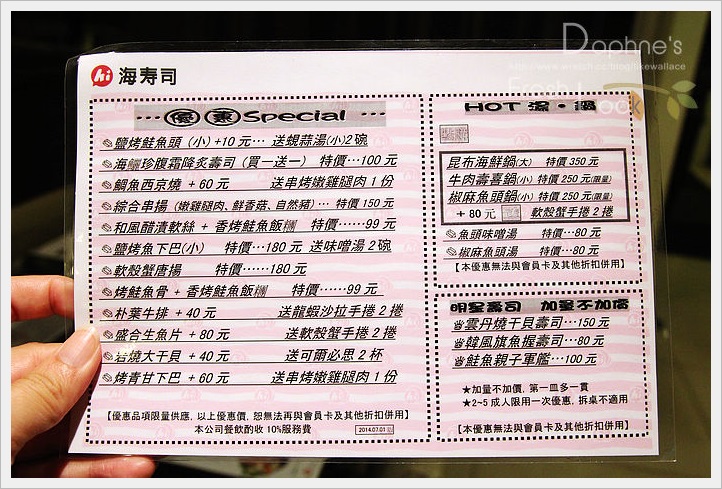 Daphne's
hi 海寿司
優惠Special
鹽烤鮭魚頭 (小) +10 元… 送蜆蒜湯(小)2碗
海鱺珍腹霜降炙壽司 (買一送一) 特價…100 元
鯛魚西京燒 + 60 元 送串烤嫩雞腿肉 1 份
綜合串揚 (嫩雞腿肉、鮮香菇、自然豬)… 特價 150元
和風醋漬軟絲 + 香烤鮭魚飯糰 特價……99 元
鹽烤魚下巴(小) 特價…180 元 送味噌湯2碗
軟殼蟹唐揚 特價……180 元
烤鮭魚骨 + 香烤鮭魚飯糰 特價……99元
朴葉牛排 + 40 元 送龍蝦沙拉手捲 2 捲
盛合生魚片 + 80 元 送軟殼蟹手捲 2 捲
岩燒大干貝 + 40 元 送可爾必思 2 杯
烤青甘下巴 + 60 元 送串烤嫩雞腿肉 1 份
【優惠品項限量供應, 以上優惠價, 恕無法再與會員卡及其他折扣併用】
本公司餐飲酌收 10%服務費 2014.07.01
HOT 湯・鍋
昆布海鮮鍋(大) 特價 350 元
牛肉壽喜鍋(小) 特價 250 元(限量)
椒麻魚頭鍋(小) 特價 250 元(限量)
+ 80 元 軟殼蟹手捲 2 捲
魚頭味噌湯 特價…80 元
椒麻魚頭湯 特價…80 元
【本優惠無法與會員卡及其他折扣併用】
明星壽司 加量不加價
雲丹燒干貝壽司…150 元
韓風旗魚握壽司…80 元
鮭魚親子軍艦…100 元
★加量不加價, 第一皿多一貫
★2~5 成人限用一次優惠, 拆桌不適用
【本優惠無法與會員卡及其他折扣併用】